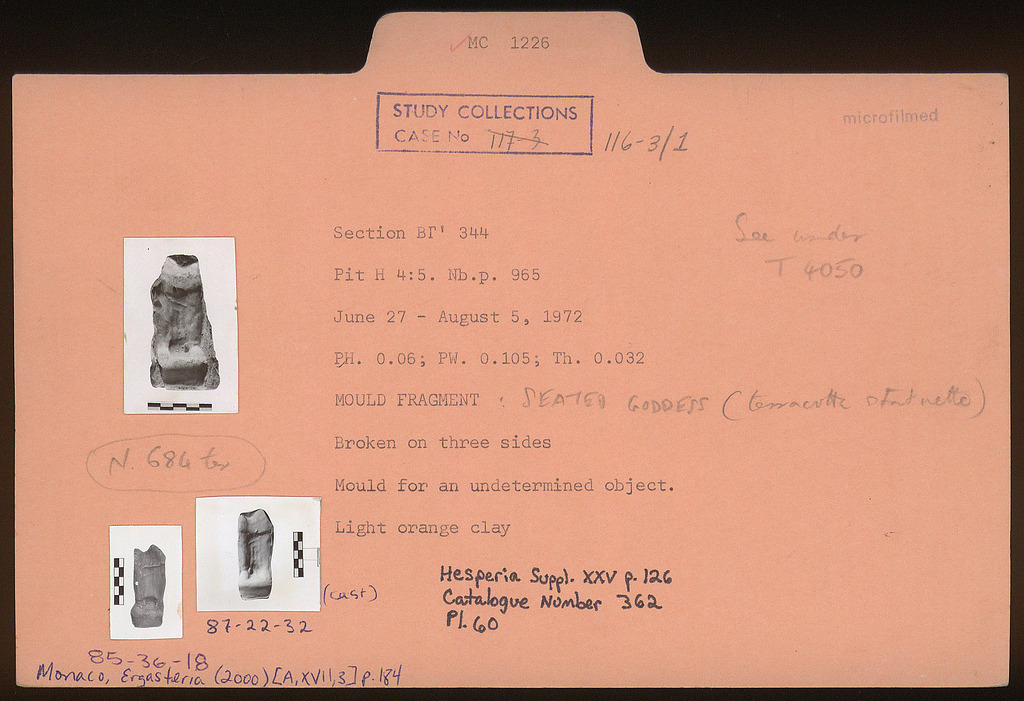 MC 1226
STUDY COLLECTIONS
CASE No 117-3 116-3/1
microfilmed
Section ΒΓ' 344
Pit H 4:5. Nb.p. 965
June 27 - August 5, 1972
PH. 0.06; PW. 0.105; Th. 0.032
MOULD FRAGMENT : SEATED GODDESS (terracotta statuette)
Broken on three sides
Mould for an undetermined object.
Light orange clay
See under
T 4050
N. 684 ter
(cast)
87-22-32
85-36-18
Hesperia Suppl. XXV p. 126
Catalogue Number 362
Pl. 60
Monaco, Ergasteria (2000) [A,XVII,3] p. 184